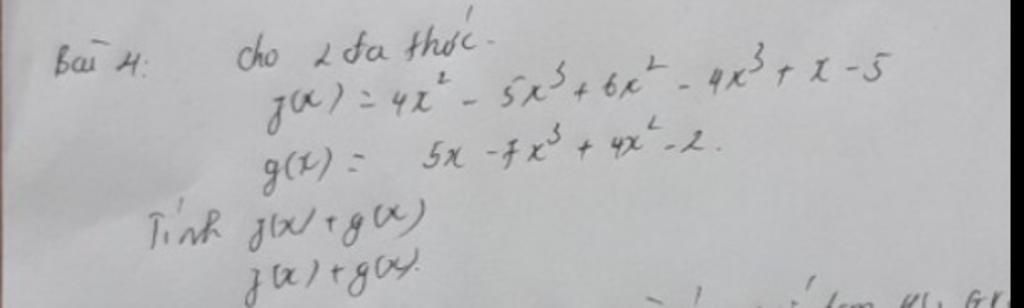 Bài 4: Cho 2 đa thức.
f(x) = 4x² - 5x³ + 6x² - 4x³ + x - 5
g(x) = 5x - 7x³ + 4x² - 2.
Tính f(x) + g(x)
f(x) + g(x).